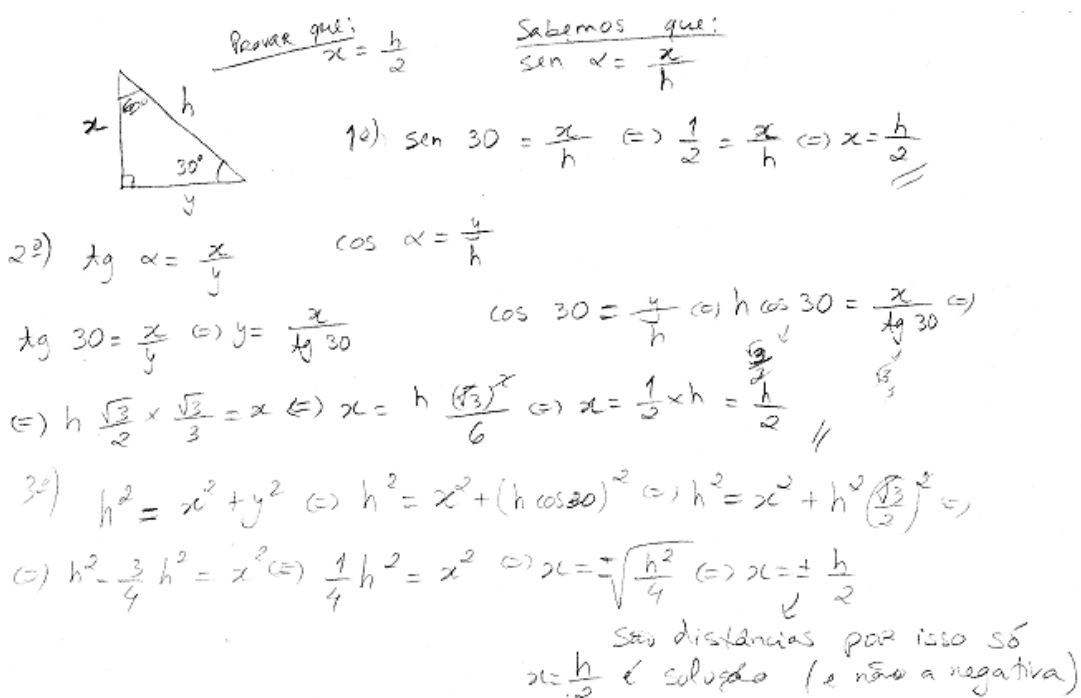 Provar que:
x = h/2
Sabemos que:
sen α = x/h
60°
x
h
30°
y
1º) sen 30 = x/h (=) 1/2 = x/h (=) x = h/2 //
2º) tg α = x/y
cos α = y/h
tg 30 = x/y (=) y = x/tg 30
cos 30 = y/h (=) h cos 30 = x/tg 30 (=)
√3/2
√3/3
(=) h √3/2 × √3/3 = x (=) x = h (√3)²/6 (=) x = 1/2 × h = h/2 //
3º) h² = x² + y² (=) h² = x² + (h cos 30)² (=) h² = x² + h² (√3/2)² (=)
(=) h² - 3/4 h² = x² (=) 1/4 h² = x² (=) x = ±√(h²/4) (=) x = ± h/2
São distâncias por isso só
x = h/2 é solução (e não a negativa)